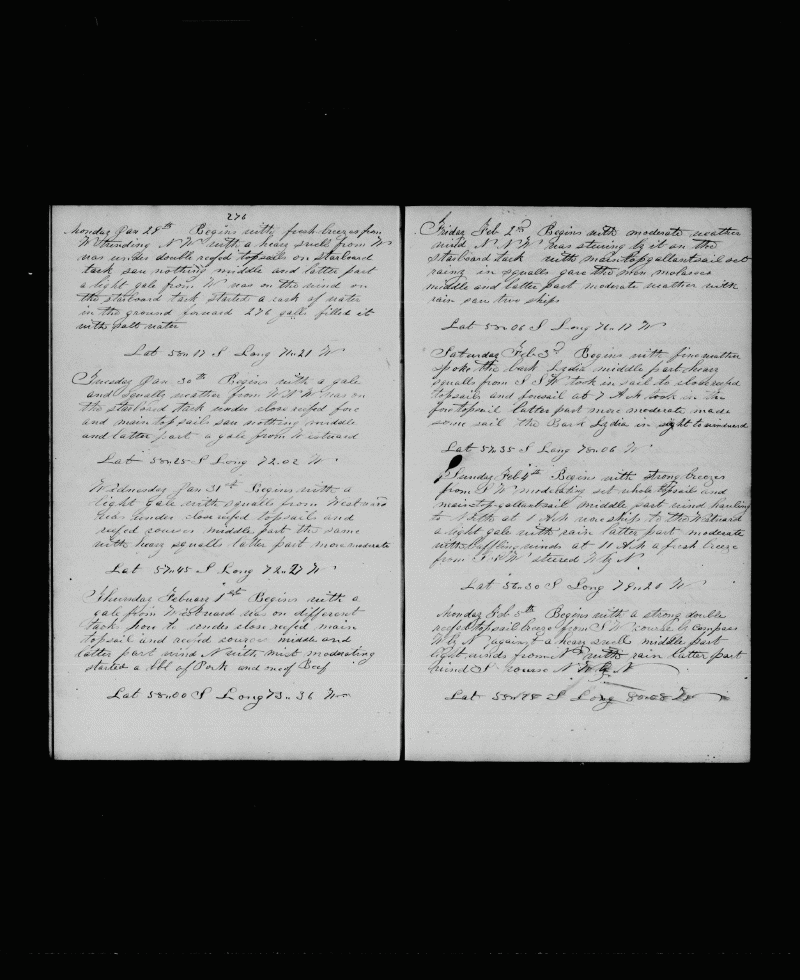 276
Monday Jan 28th Begins with fresh breezes from
W tending N W with a heavy swell from W
was under double reefed topsails on starboard
tack saw nothing middle and latter part
a light gale from W was on the wind on
the starboard tack started a cask of water
in the ground forward 276 galls filled it
with salt water
Lat 58..17 S Long 71..21 W
Tuesday Jan 30th Begins with a gale
and squally weather from W was on
the starboard tack under close reefed fore
and main topsails saw nothing middle
and latter part a gale from Westward
Lat 58..25 S Long 72..02 W
Wednesday Jan 31st Begins with a
light gale with squalls from Westward
was under close reefed topsails and
reefed courses middle part the same
with heavy squalls latter part more moderate
Lat 57..45 S Long 72..27 W
Thursday Febuary 1st Begins with a
gale from Westward was on different
tack how to under close reefed main
topsail and reefd courses middle and
latter part wind N with mist moderating
started a bbl of Pork and one of Beef
Lat 58..00 S Long 73..36 W
Friday Feb 2nd Begins with moderate weather
wind N N W was steering by it on the
starboard tack with maintopgallantsail set
rainy in squalls gave the men molasses
middle and latter part moderate weather with
rain saw two ships
Lat 58..06 S Long 76..17 W
Saturday Feb 3d Begins with fine weather
spoke the bark Lydia middle part heavy
squalls from S S W took in sail to close reefed
topsails and foresail at 7 A M took in the
foretopsail latter part more moderate made
some sail the Bark Lydia in sight to windward
Lat 57..35 S Long 78..06 W
Sunday Feb 4th Begins with strong breezes
from S W modelating set whole topsails and
maintopgallantsail middle part wind hauling
to Nith at 1 A M wore ship to the Westward
a light gale with rain latter part moderate
with baffling winds at 11 A M a fresh breeze
from S W steered W by N
Lat 56..30 S Long 79..20 W
Monday Feb 5th Begins with a strong double
reefed topsail breeze from S W course by compass
W by N again a heavy swell middle part
light winds from N with rain latter part
wind S course N W by N
Lat S Long W